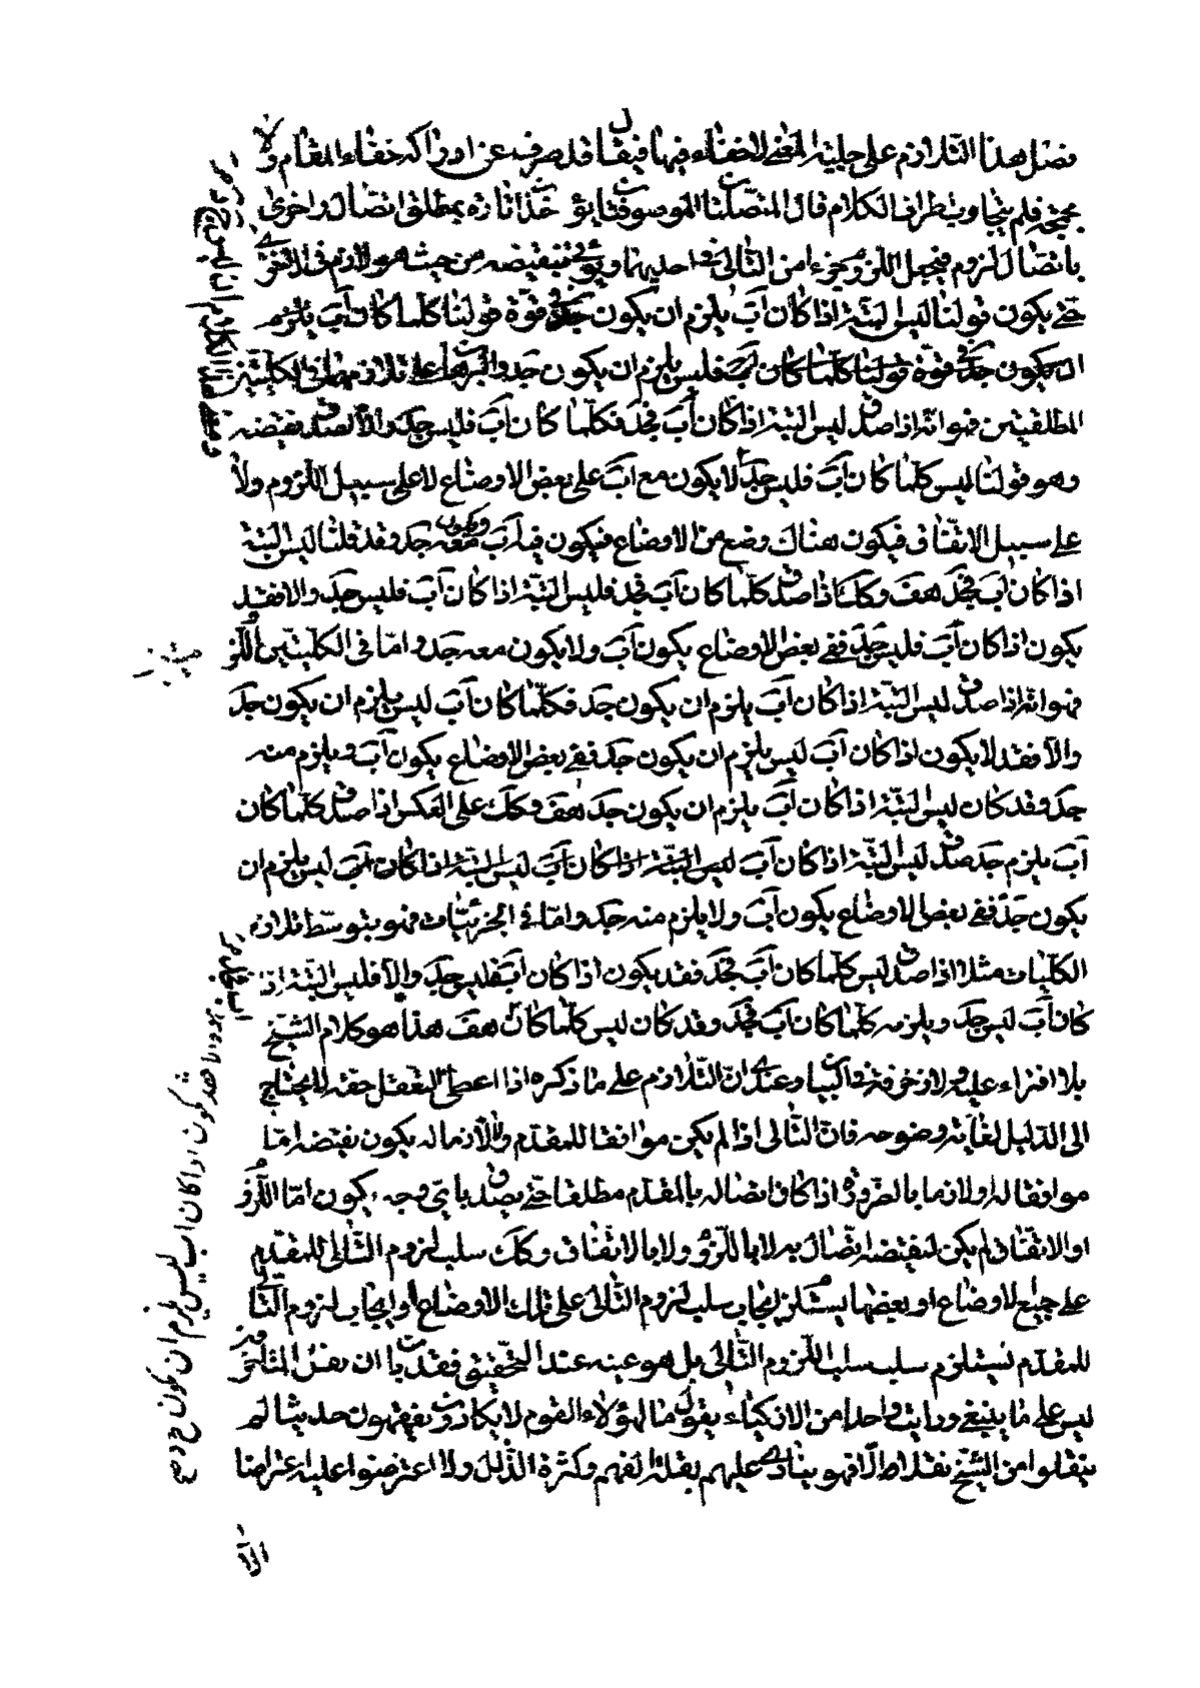 فضل هذا التلازم على جلية المعنى لا خفاء فيها فيقال قد صرفه عن ادراكه خفاء المقام ولا
فلم يتجاوب طرفا الكلام فان المتصلتان الموصوفتان تؤخذان تارة بمطلق اتصال واخرى
باتصال لزوم فيجعل اللزوم جزءا من التالى فى احديهما ويؤتى بنقيضه من حيث هو لازم فى الاخرى
حتى يكون قولنا ليس البتة اذا كان آب يلزم ان يكون جد فى قوة قولنا كلما كان آب يلزم
ان يكون جد فى قوة قولنا كلما كان آب فليس يلزم ان يكون جد والبرهان على تلازمهما فى الكليتين
المطلقيتين فهو انه اذا صدق ليس البتة اذا كان آب فجد فكلما كان آب فليس جد والا لصدق نقيضه
وهو قولنا ليس كلما كان آب فليس جد لا يكون مع آب على بعض الاوضاع لا على سبيل اللزوم ولا
على سبيل الاتفاق فيكون هناك وضع من الاوضاع فيكون فيه آب ويكون معه جد وقد قلنا ليس البتة
اذا كان آب فجد هف وكك اذا صدق كلما كان آب فجد فليس البتة اذا كان آب فليس جد والا فقد
يكون اذا كان آب فليس جد ففى بعض الاوضاع يكون آب ولا يكون معه جد واما فى الكليتين اللزوميتين
فهو انه اذا صدق ليس البتة اذا كان آب يلزم ان يكون جد فكلما كان آب ليس يلزم ان يكون جد
والا فقد لا يكون اذا كان آب ليس يلزم ان يكون جد ففى بعض الاوضاع يكون آب ويلزم منه
جد وقد كان ليس البتة اذا كان آب يلزم ان يكون جد هف وكك على العكس اذا صدق كلما كان
آب يلزم جد صدق ليس البتة اذا كان آب ليس البتة اذا كان آب ليس البتة اذا كان آب ليس يلزم ان
يكون جد ففى بعض الاوضاع يكون آب ولا يلزم منه جد واما فى الجزئيات فهو بتوسط تلازم
الكليات مثلا اذا صدق ليس كلما كان آب فجد فقد يكون اذا كان آب فليس جد والا فليس البتة اذا
كان آب ليس جد ويلزمه كلما كان آب فجد وقد كان ليس كلما كان هف هذا هو كلام الشيخ
بلا افتراء عليه ولا زخرفة فى البيان وعندى ان التلازم على ما ذكره اذا اعطى التعقل حقه لا يحتاج
الى الدليل لغاية وضوحه فان التالى اذا لم يكن موافقا للمقدم ولا لازما له يكون نقيضه اما
موافقا له او لازما بالضرورة اذا كان اتصاله بالمقدم مطلقا حتى يصدق باى وجه يكون اما اللزوم
او الاتفاق لم يكن لنقيضه اتصال به لا باللزوم ولا بالاتفاق وكك سلب لزوم التالى للمقدم
على جميع الاوضاع او بعضها يستلزم ايجاب سلب لزوم التالى على تلك الاوضاع او ايجاب لزوم التالى
للمقدم يستلزم سلب سلب اللزوم التالى بل هو عينه عند التحقيق فقد بان ان نقل المتاخرين
ليس على ما ينبغى ورايت واحدا من الاذكياء يقول ما لهؤلاء القوم لا يكادون يفقهون حديثا لم
ينقلوا من الشيخ نقلا الا فهو ينادى عليهم بقلة الفهم وكثرة الذلل ولا اعترضوا عليه اعتراضا
الا
يكون اذا كان اب ليس يلزم ان يكون ج د